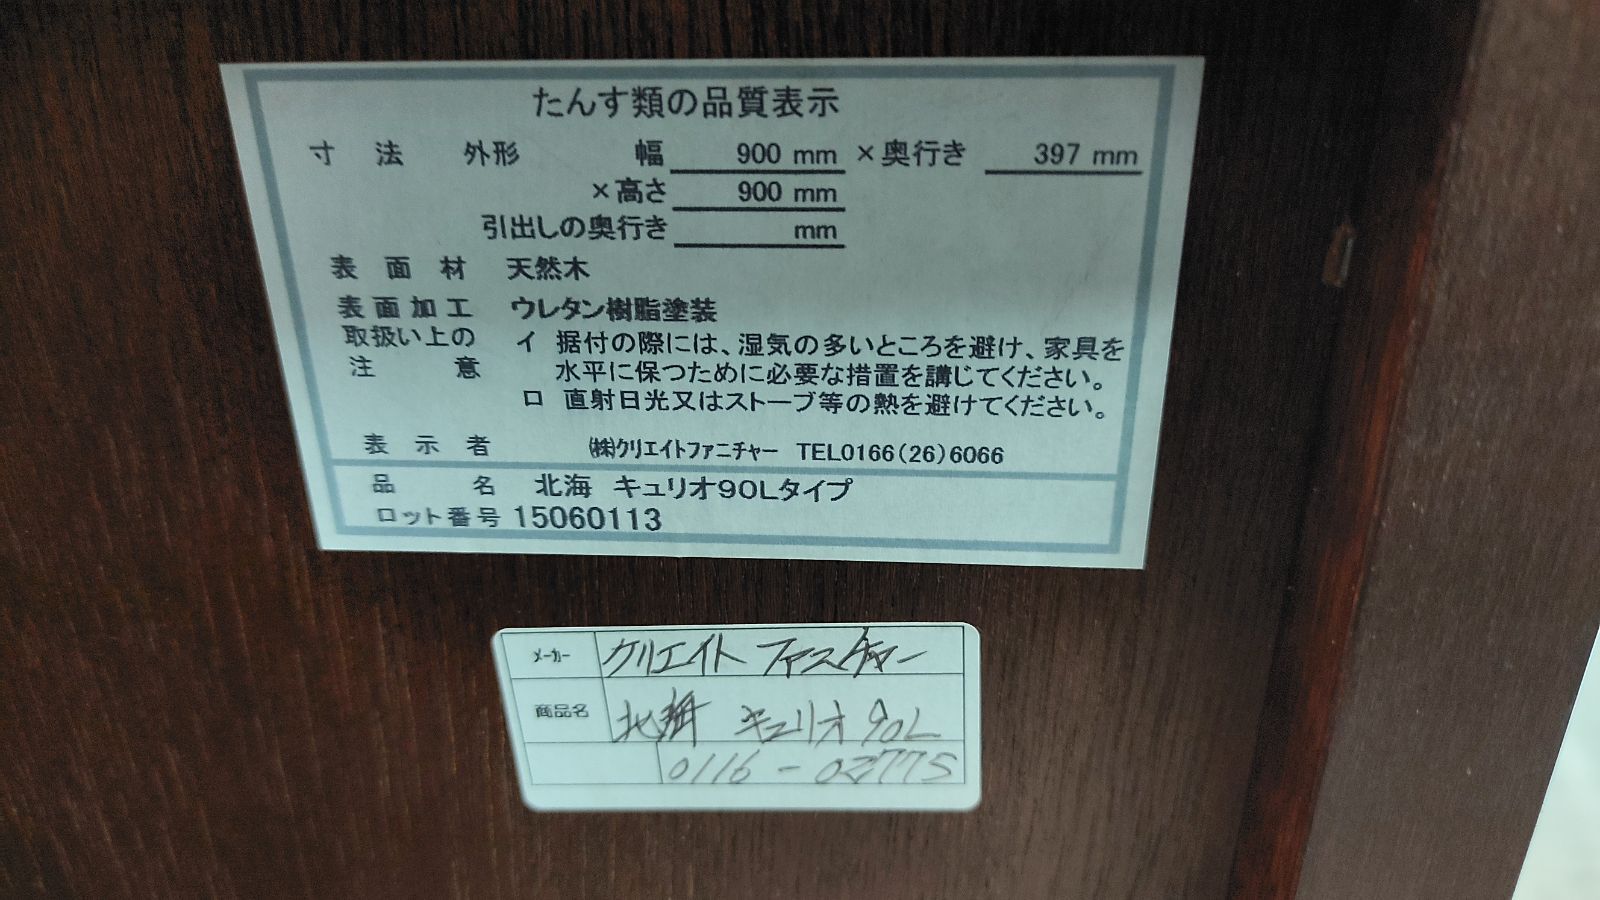 たんす類の品質表示
寸法 外形 幅 900 mm ×奥行き 397 mm
×高さ 900 mm
引出しの奥行き mm
表面材 天然木
表面加工 ウレタン樹脂塗装
取扱い上の注意 イ 据付の際には、湿気の多いところを避け、家具を
水平に保つために必要な措置を講じてください。
ロ 直射日光又はストーブ等の熱を避けてください。
表示者 ㈱クリエイトファニチャー TEL0166(26)6066
品名 北海 キュリオ90Lタイプ
ロット番号 15060113
メーカー クリエイト ファニチャー
商品名 北海 キュリオ 90L
0116-02775